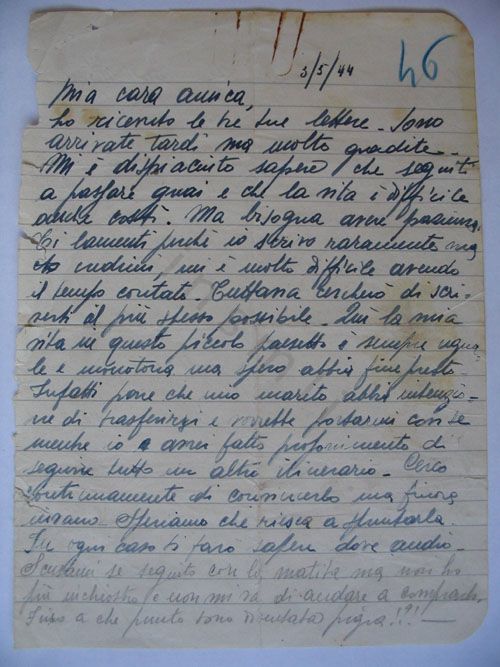 3/5/44
46
Mia cara amica,
ho ricevuto le tre tue lettere. Sono
arrivate tardi ma molto gradite.
Mi è dispiaciuto sapere che seguiti
a passare guai e che la vita è difficile
anche costì. Ma bisogna avere pazienza.
Ti lamenti perché io scrivo raramente ma
credimi, mi è molto difficile avendo
il tempo contato. Tuttavia cercherò di scri-
verti il più spesso possibile. Qui la mia
vita in questo piccolo paesetto è sempre ugua-
le e monotona ma spero abbia fine presto.
Infatti pare che mio marito abbia intenzio-
ne di trasferirsi e vorrebbe portarmi con se
mentre io avrei fatto proponimento di
seguire tutto un altro itinerario. Cerco
continuamente di convincerlo ma finora
invano. Speriamo che riesca a spuntarla.
In ogni caso ti farò sapere dove andrò.
Scusami se seguito con la matita ma non ho
più inchiostro e non mi va di andare a comprarlo.
a che punto sono diventata pigra!!! —